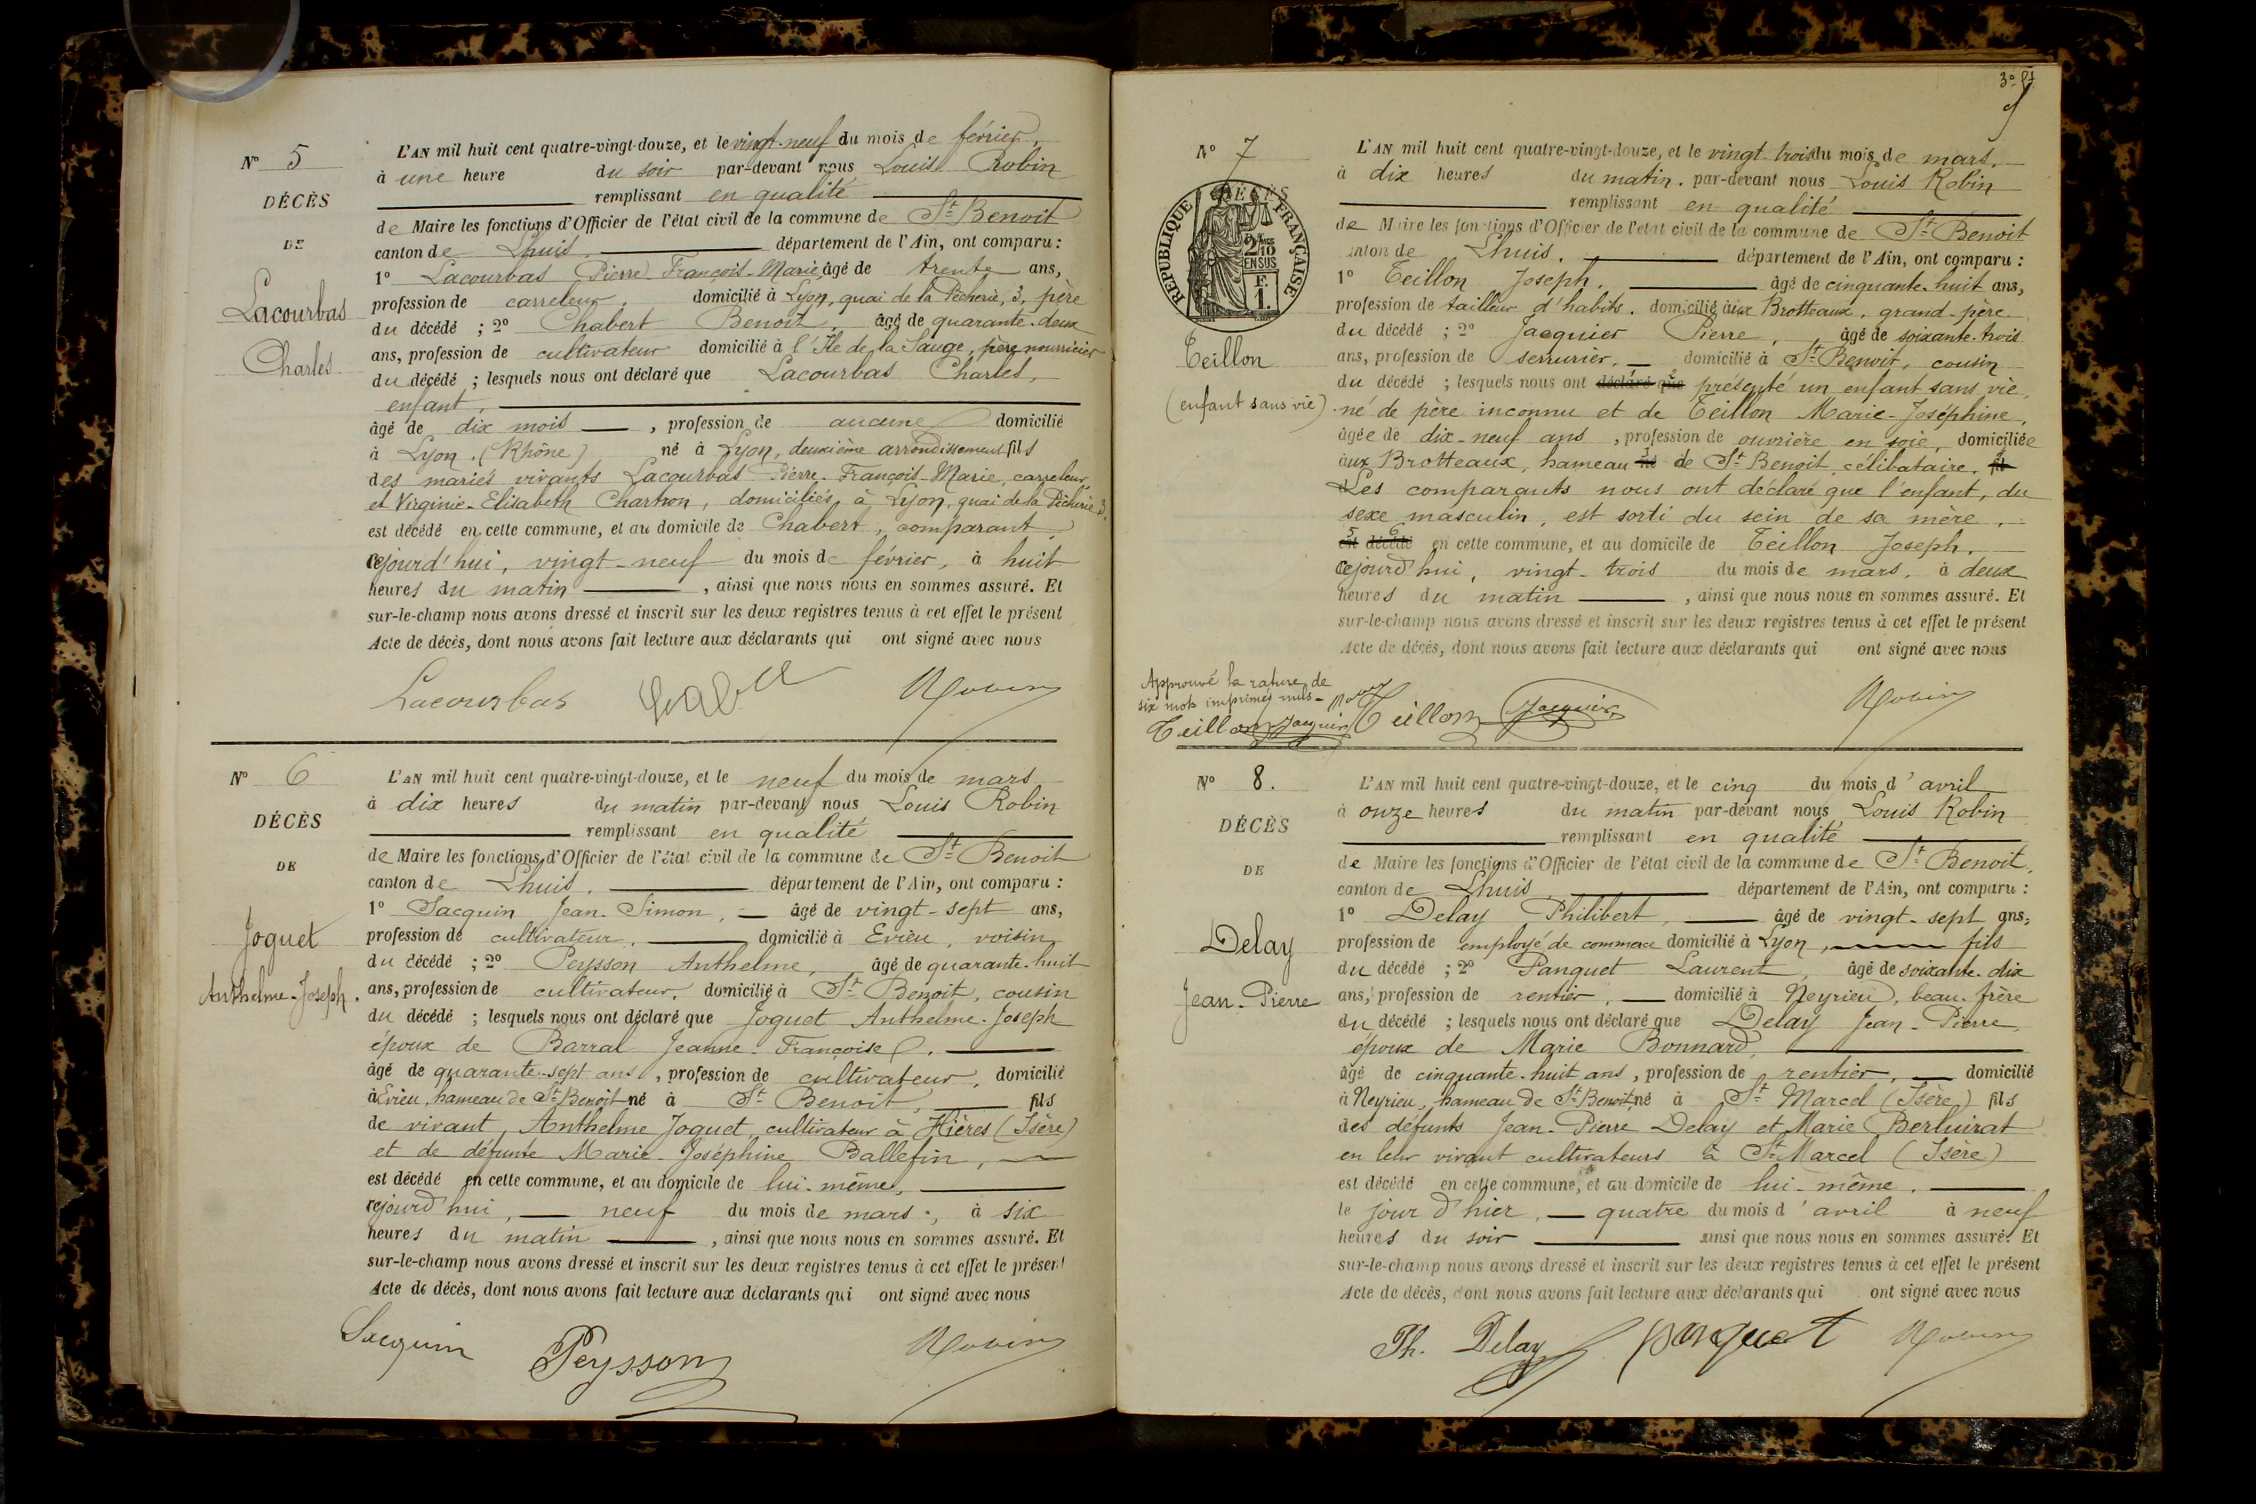 N° 5
DÉCÈS
DE
Lacourbas
Charles
L'AN mil huit cent quatre-vingt-douze, et le vingt-neuf du mois de février,
à une heure du soir par-devant nous Louis Robin
remplissant en qualité
de Maire les fonctions d'Officier de l'état civil de la commune de St Benoit
canton de Lhuis. département de l'Ain, ont comparu :
1° Lacourbas Pierre François-Marie, âgé de trente ans,
profession de carreleur, domicilié à Lyon, quai de la Pêcherie, 3, père
du décédé ; 2° Chabert Benoit, âgé de quarante-deux
ans, profession de cultivateur domicilié à l'Île de la Sauge, père nourricier
du décédé ; lesquels nous ont déclaré que Lacourbas Charles,
enfant,
âgé de dix mois, profession de aucune domicilié
à Lyon. (Rhône) né à Lyon, deuxième arrondissement fils
des mariés vivants Lacourbas Pierre-François-Marie, carreleur,
et Virginie-Elisabeth Chartron, domiciliés à Lyon, quai de la Pêcherie 3.
est décédé en cette commune, et au domicile de Chabert, comparant,
cejourd'hui, vingt-neuf du mois de février, à huit
heures du matin, ainsi que nous nous en sommes assuré. Et
sur-le-champ nous avons dressé et inscrit sur les deux registres tenus à cet effet le présent
Acte de décès, dont nous avons fait lecture aux déclarants qui ont signé avec nous
Lacourbas Robin
N° 6
DÉCÈS
DE
Joguet
Anthelme-Joseph.
L'AN mil huit cent quatre-vingt-douze, et le neuf du mois de mars
à dix heures du matin par-devant nous Louis Robin
remplissant en qualité
de Maire les fonctions d'Officier de l'état civil de la commune de St Benoit
canton de Lhuis. département de l'Ain, ont comparu :
1° Sacquin Jean-Simon, âgé de vingt-sept ans,
profession de cultivateur, domicilié à Evieu, voisin
du décédé ; 2° Peysson Anthelme, âgé de quarante-huit
ans, profession de cultivateur, domicilié à St Benoit, cousin
du décédé ; lesquels nous ont déclaré que Joguet Anthelme-Joseph
époux de Barral Jeanne-Françoise.
âgé de quarante-sept ans, profession de cultivateur, domicilié
à Evieu, hameau de St Benoit né à St Benoit, fils
de vivant, Anthelme Joguet, cultivateur à Hières (Isère)
et de défunte Marie-Joséphine Ballefin,
est décédé en cette commune, et au domicile de lui-même,
cejourd'hui, neuf du mois de mars, à six
heures du matin, ainsi que nous nous en sommes assuré. Et
sur-le-champ nous avons dressé et inscrit sur les deux registres tenus à cet effet le présent
Acte de décès, dont nous avons fait lecture aux déclarants qui ont signé avec nous
Sacquin Peysson Robin
N° 7
DÉCÈS
RÉPUBLIQUE FRANÇAISE
Teillon
(enfant sans vie)
L'AN mil huit cent quatre-vingt-douze, et le vingt-trois du mois de mars.
à dix heures du matin. par-devant nous Louis Robin
remplissant en qualité
de Maire les fonctions d'Officier de l'état civil de la commune de St Benoit
canton de Lhuis. département de l'Ain, ont comparu :
1° Teillon Joseph, âgé de cinquante-huit ans,
profession de tailleur d'habits. domicilié aux Brotteaux, grand-père
du décédé ; 2° Jacquier Pierre, âgé de soixante-trois
ans, profession de serrurier, domicilié à St Benoit, cousin
du décédé ; lesquels nous ont déclaré que présenté un enfant sans vie,
né de père inconnu et de Teillon Marie-Joséphine,
âgée de dix-neuf ans, profession de ouvrière en soie, domiciliée
aux Brotteaux, hameau né de St Benoit, célibataire. fils
Les comparants nous ont déclaré que l'enfant, du
sexe masculin, est sorti du sein de sa mère,
est décédé en cette commune, et au domicile de Teillon Joseph,
cejourd'hui, vingt-trois du mois de mars, à deux
heures du matin, ainsi que nous nous en sommes assuré. Et
sur-le-champ nous avons dressé et inscrit sur les deux registres tenus à cet effet le présent
Acte de décès, dont nous avons fait lecture aux déclarants qui ont signé avec nous
Approuvé la rature de
six mots imprimés nuls - Robin
Teillon Jacquier Teillon Jacquier Robin
N° 8.
DÉCÈS
DE
Delay
Jean-Pierre
L'AN mil huit cent quatre-vingt-douze, et le cinq du mois d'avril
à onze heures du matin par-devant nous Louis Robin
remplissant en qualité
de Maire les fonctions d'Officier de l'état civil de la commune de St Benoit,
canton de Lhuis département de l'Ain, ont comparu :
1° Delay Philibert, âgé de vingt-sept ans,
profession de employé de commerce domicilié à Lyon, fils
du décédé ; 2° Panquet Laurent, âgé de soixante-dix
ans, profession de rentier, domicilié à Neyrieu, beau-frère
du décédé ; lesquels nous ont déclaré que Delay Jean-Pierre,
époux de Marie Bonnard,
âgé de cinquante-huit ans, profession de rentier, domicilié
à Neyrieu, hameau de St Benoit, né à St Marcel (Isère) fils
des défunts Jean-Pierre Delay et Marie Berluirat
en leur vivant cultivateurs à St Marcel (Isère)
est décédé en cette commune, et au domicile de lui-même.
le jour d'hier, quatre du mois d'avril à neuf
heures du soir ainsi que nous nous en sommes assuré. Et
sur-le-champ nous avons dressé et inscrit sur les deux registres tenus à cet effet le présent
Acte de décès, dont nous avons fait lecture aux déclarants qui ont signé avec nous
Ph. Delay Panquet Robin